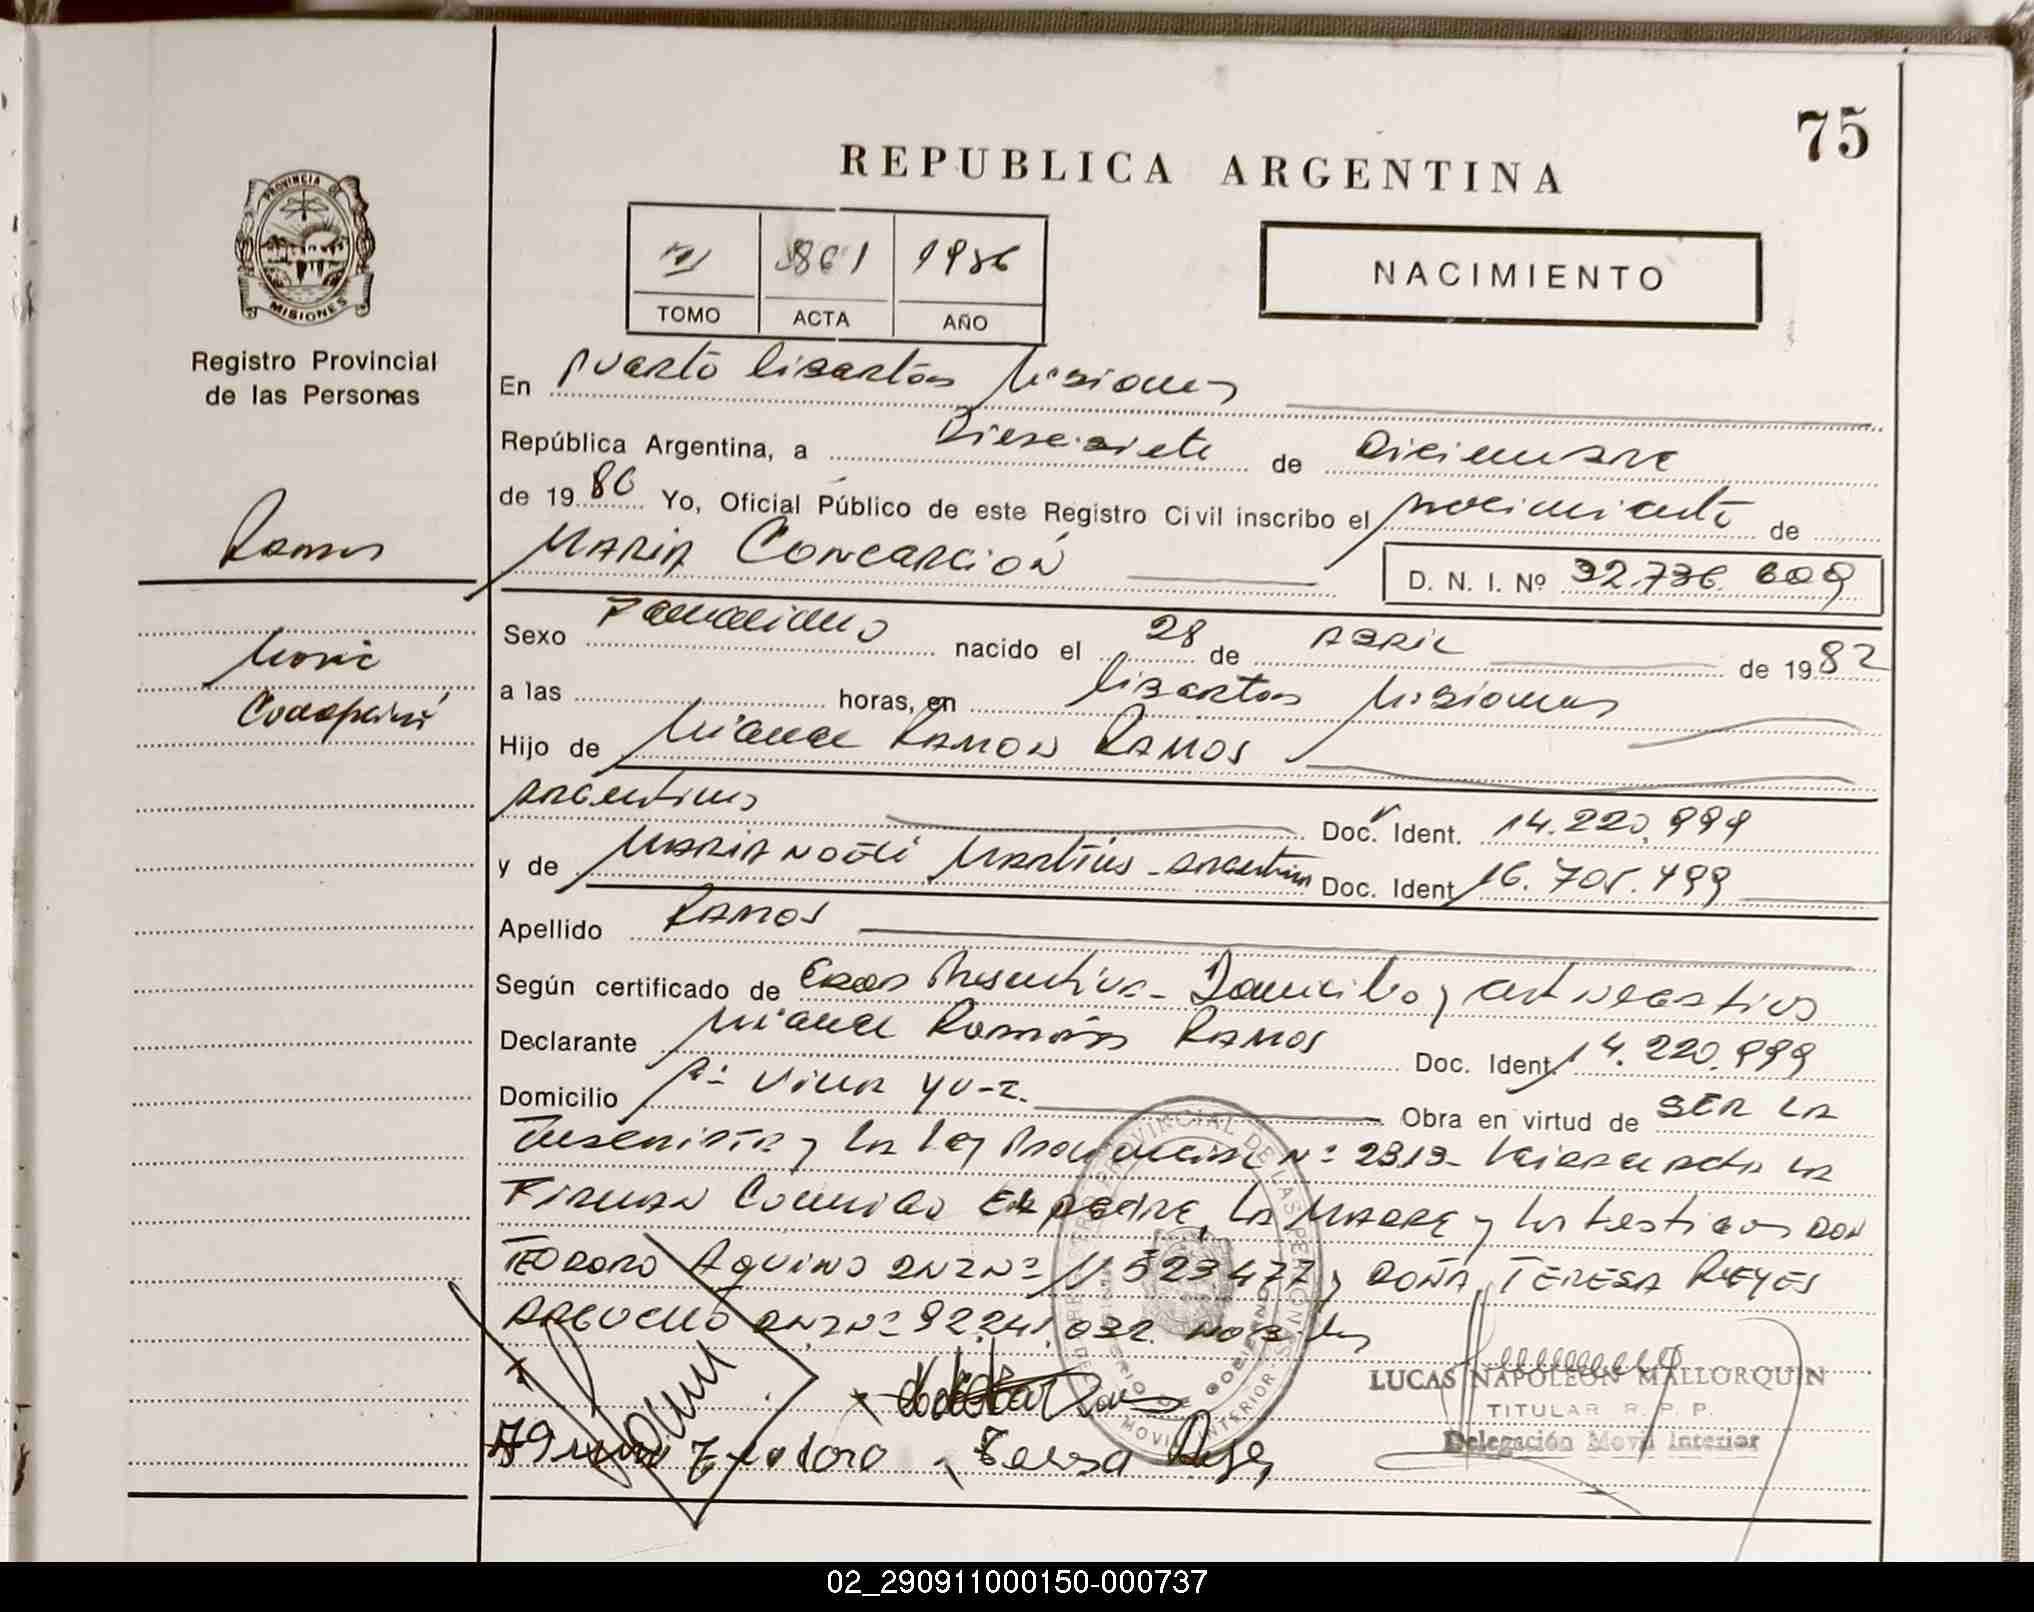 75
REPUBLICA ARGENTINA
PROVINCIA DE
MISIONES
Registro Provincial
de las Personas
861 1986
TOMO ACTA AÑO
NACIMIENTO
En Puerto Libertad Misiones
República Argentina, a Diesisiete de Diciembre
de 1986 Yo, Oficial Público de este Registro Civil inscribo el nacimiento de
Ramos
MARIA CONCEPCIÓN
D. N. I. Nº 32.736.609
Sexo Femenino nacido el 28 de ABRIL de 1982
Maria
Concepción
a las horas, en Libertad Misiones
Hijo de Miguel RAMON RAMOS
Argentino Doc. Ident. 14.220.999
y de MARIA NOEMI Martins - Argentina Doc. Ident 16.705.499
Apellido RAMOS
Según certificado de Edad Presuntiva - Domicilio y
Declarante Miguel Ramón RAMOS Doc. Ident. 14.220.999
Domicilio Villa Obra en virtud de SER LA
Inscripta y la Ley Provincial Nº 2313 - la
Firman Conmigo El padre, LA MADRE y los testigos DON
TEODORO AQUINO DNI Nº 523477 y DOÑA TERESA REYES
ARGUELLO DNI Nº 92.241.032
LUCAS NAPOLEON MALLORQUIN
TITULAR R. P. P.
Delegación Movil Interior
Teodoro Teresa Reyes
02_290911000150-000737